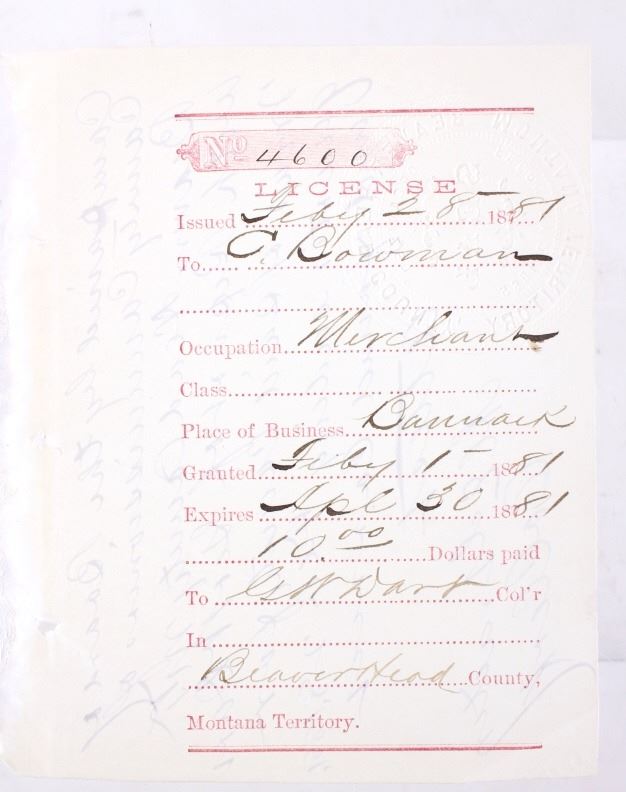 No 4600
LICENSE
Issued Feby 28 1881
To C. Bowman
Occupation Merchant
Class
Place of Business Bannack
Granted Feby 1 1881
Expires Apl 30 1881
10.00 Dollars paid
To G W Dart Col'r
In
BeaverHead County,
Montana Territory.